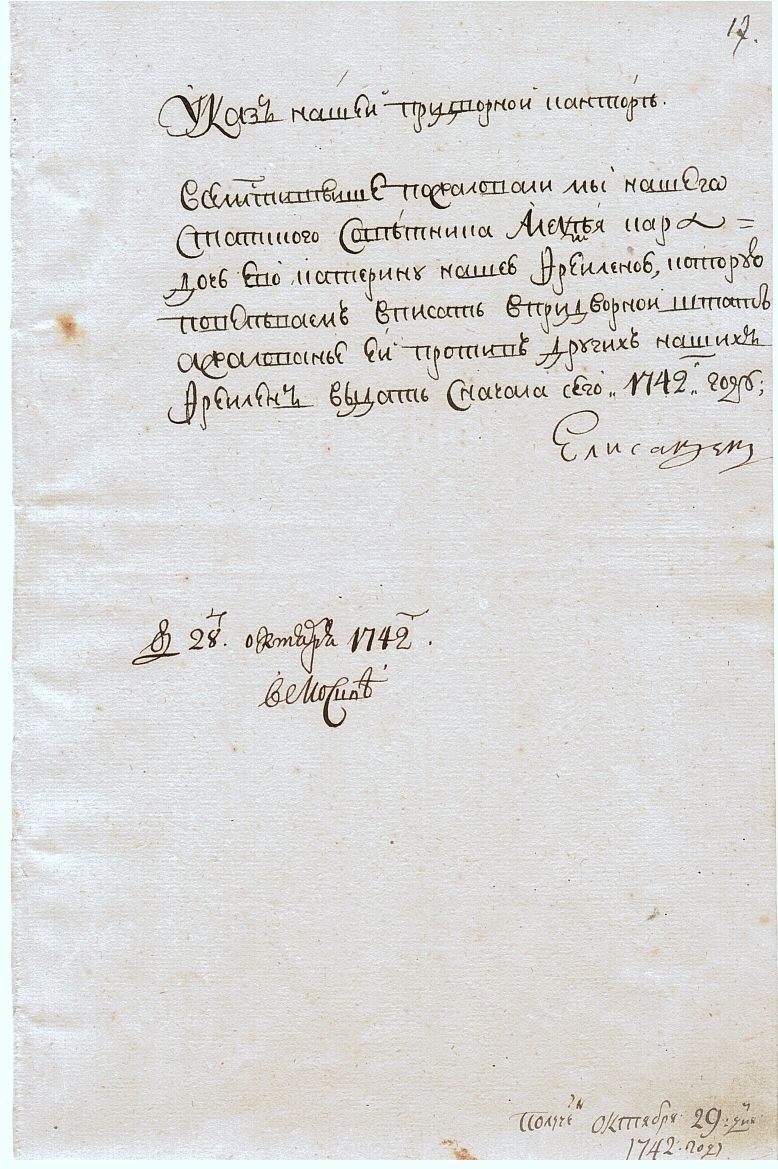 17.
Указъ нашей придворной канторѣ.
Всемилостивѣише пожаловали мы нашего
статского Советника Алеѯѣя
дочь ево катерину нашеѣ Фреиленою, которую
повелѣваемъ вписать впридворной штатъ
ажалованье ей противъ другихъ нашихъ
Фреиленъ выдать сначала сего „1742„ году;
Елисаветъ
28 г. октября 1742 г.
в Москвѣ
Получ октября 29: дня
1742 году